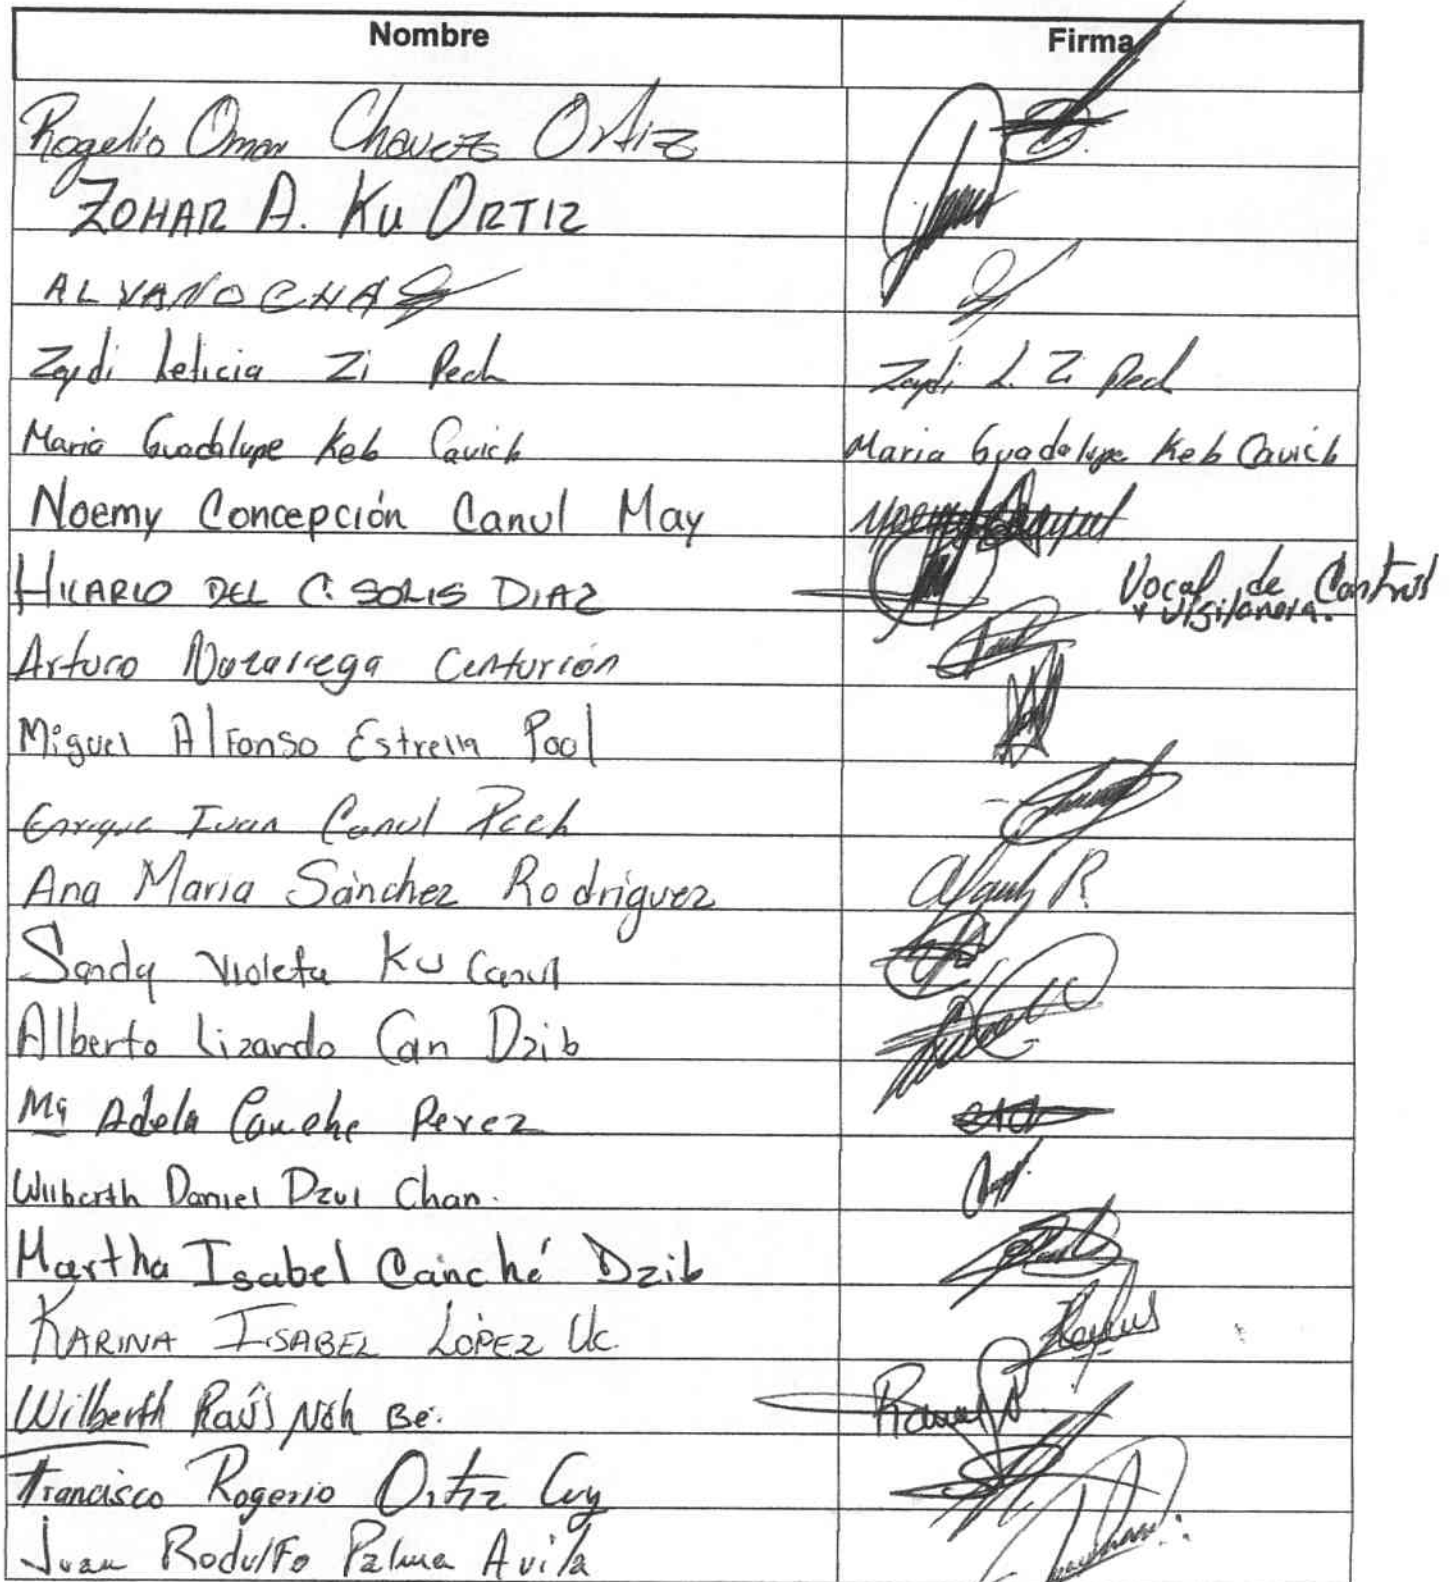 Nombre Firma
Rogelio Omar Chavez Ortiz
ZOHAR A. KU ORTIZ
ALVARO CHA
Zaydi Leticia Zi Pech Zaydi L. Zi Pech
Maria Guadalupe Keb Cauich Maria Guadalupe Keb Cauich
Noemy Concepción Canul May Noemy Canul
HILARIO DEL C. SOLIS DIAZ Vocal de Control
y vigilancia.
Arturo Nozarrega Centurión
Miguel Alfonso Estrella Pool
Enrique Ivan Canul Pech
Ana Maria Sánchez Rodríguez
Sandy Violeta Ku Canul
Alberto Lizardo Can Dzib
Ma Adela Canche Perez
Wilberth Daniel Dzul Chan.
Martha Isabel Canché Dzib
KARINA ISABEL LÓPEZ Uc.
Wilberth Raúl Noh Be.
Francisco Rogerio Ortiz Cuy
Juan Rodulfo Palma Avila